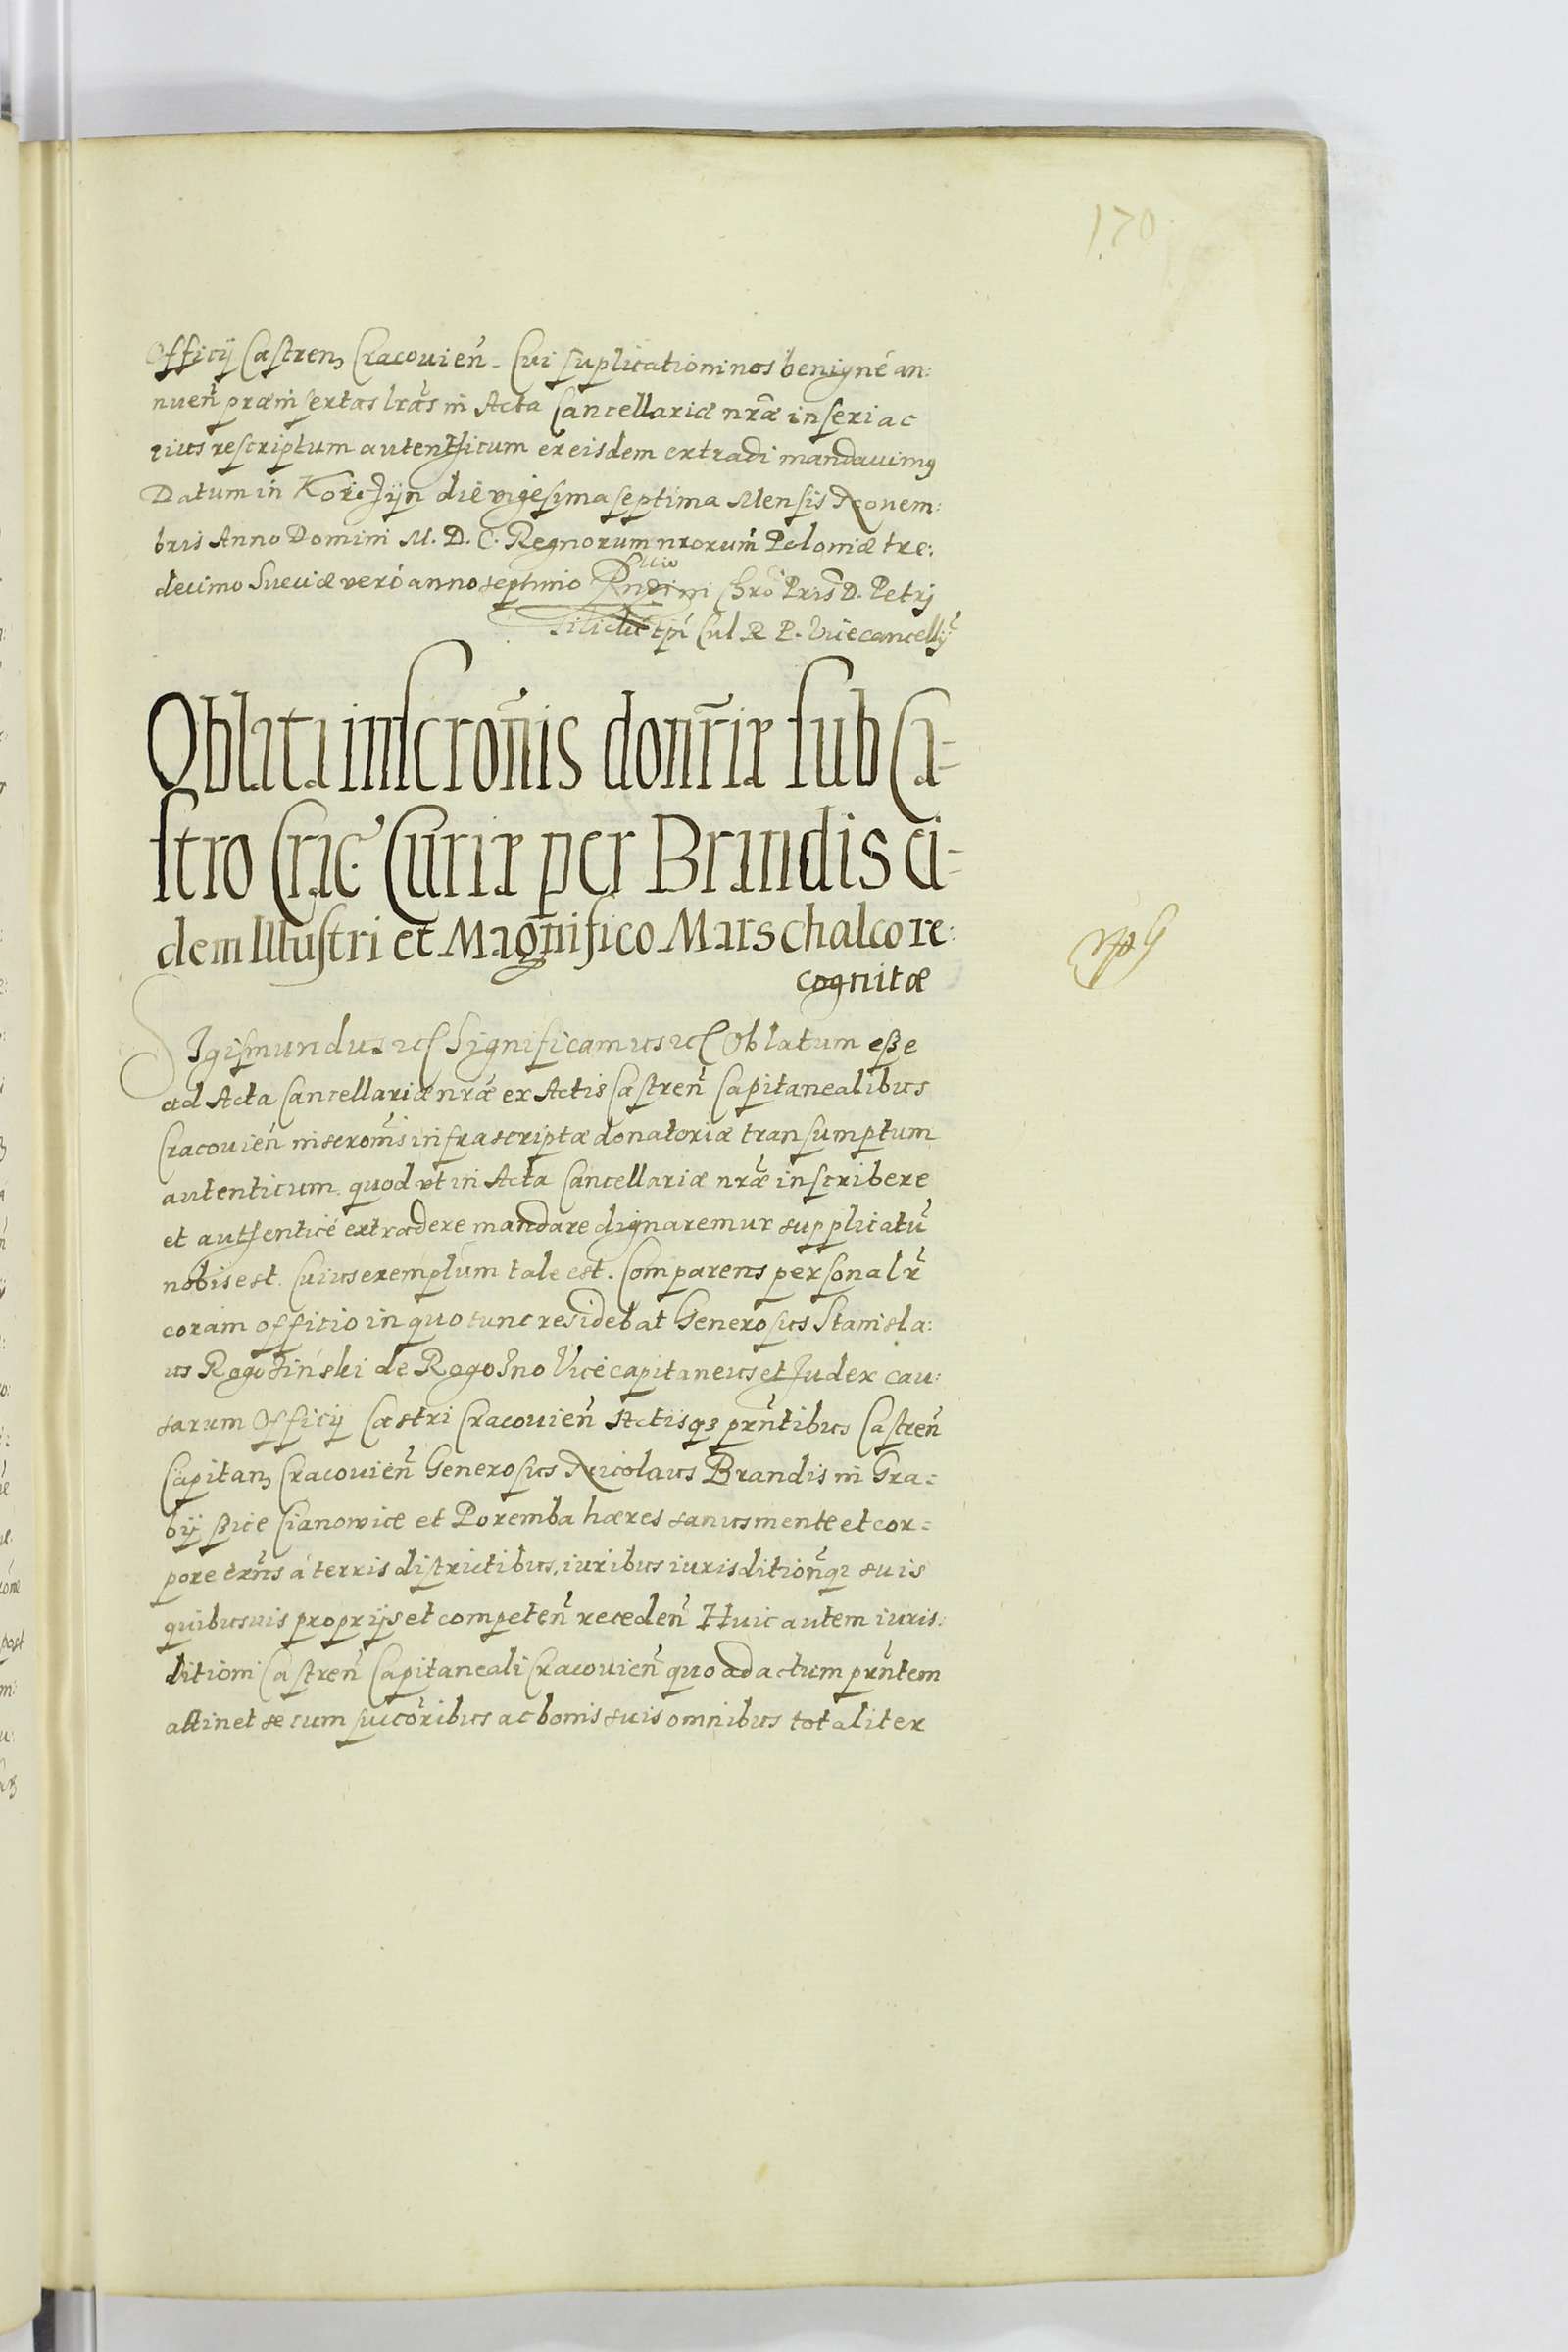 170
Officij Castren Cracouien. Cui suplicationi nos benigné an:
nuen præinsertas lras in Acta Cancellariæ nræ inseri ac
eius rescriptum autenthicum ex eisdem extradi mandauimus
Datum in die vigesima septima Mensis Nouem:
bris Anno Domini M. D. C. Regnorum nrorum Poloniæ tre:
decimo Sueciæ veró anno septimo Rndi in Chro Pris D. Petrj
Tilicki epi Cul R P. Vicecancellÿ
Oblata inscronis donriæ sub Ca-
stro Crac. Curiæ per Brandis ei-
dem Illustri et Magnifico Marschalco re:
cognitæ
Sigismundus etc Significamus etc Oblatum eße
ad Acta Cancellariæ nræ ex Actis Castren Capitanealibus
Cracouien inscronis infrascriptæ donatoriæ transumptum
autenticum quod vt in Acta Cancellariæ nræ inscribere
et authenticé extradere mandare dignaremur supplicatu
nobis est. Cuius exemplum tale est. Comparens personalr
coram officio in quo tunc residebat Generosus Stanisla:
us Rogoziński de Rogozno Vicecapitaneus et Judex cau:
sarum Officij Castri Cracouien Actisq3 prntibus Castren
Capitan Cracouien Generosus Nicolaus Brandis in Gra-
bÿ Cianowice et Poremba hæres sanus mente et cor-
pore exns á terris districtibus, iuribus iurisditionq3 suis
quibusuis proprijs et competen receden Huic autem iuris:
ditioni Castren Capitaneali Cracouien quo ad actum prntem
attinet se cum succoribus ac bonis suis omnibus totaliter